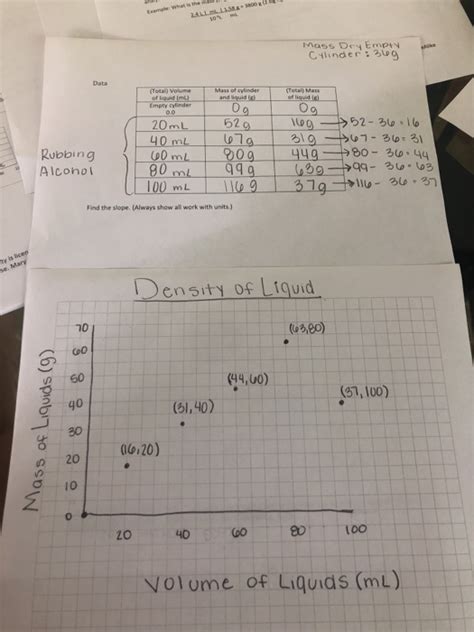 Example: What is the
Mass Dry Empty
Cylinder: 36g
Data
(Total) Volume of liquid (mL) | Mass of cylinder and liquid (g) | (Total) Mass of liquid (g)
Empty cylinder 0.0 | 0g | 0g
20mL | 52g | 16g → 52 - 36 = 16
40 mL | 67g | 31g → 67 - 36 = 31
60 mL | 80g | 44g → 80 - 36 = 44
80 mL | 99g | 63g → 99 - 36 = 63
100 mL | 116g | 37g → 116 - 36 = 37
Rubbing
Alcohol
Find the slope. (Always show all work with units.)
Density of Liquid
Mass of Liquids (g)
70
60
50
40
30
20
10
0
(63,80)
(44,60)
(37,100)
(31,40)
(16,20)
20 40 60 80 100
Volume of Liquids (mL)